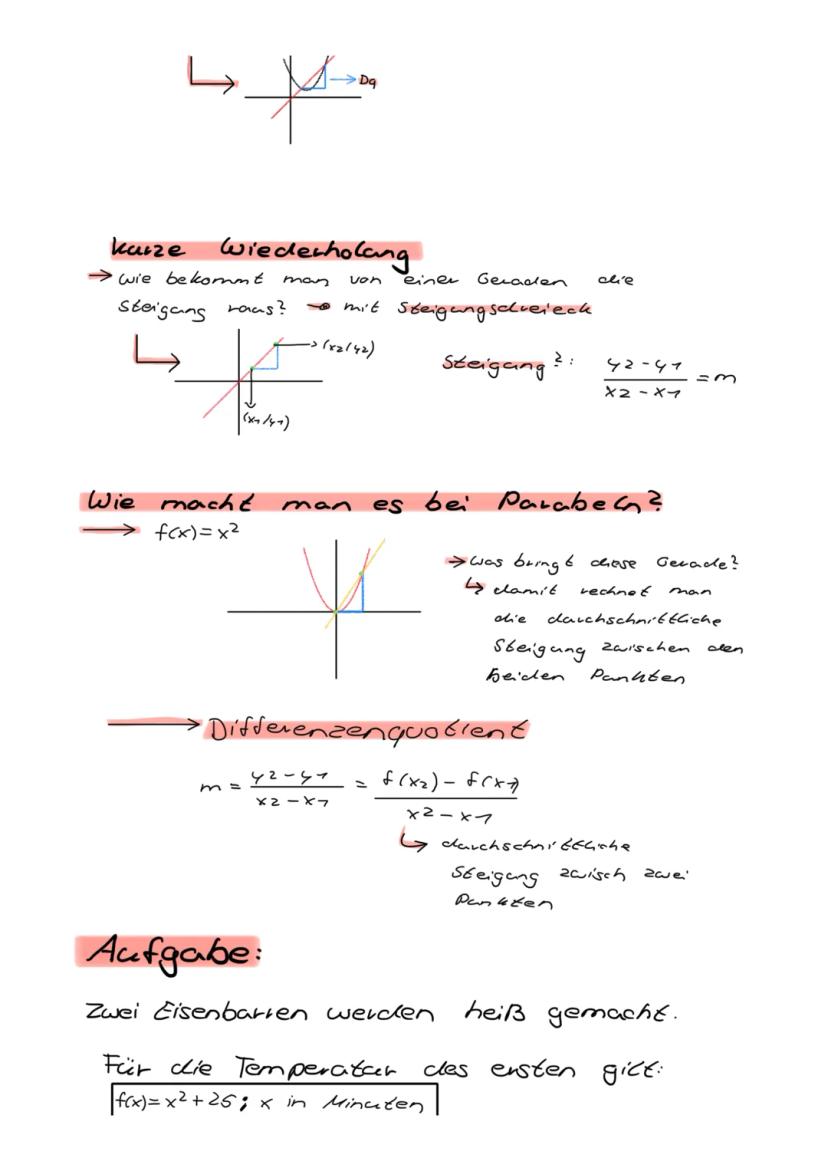 Dq
kurze Wiederholung
→ Wie bekommt man von einer Geraden die
Steigung raus? → mit Steigungsdreieck
(x2/y2)
Steigung?: y2-y1 / x2-x1 = m
(x1/y1)
Wie macht man es bei Parabeln?
→ f(x)=x²
→ Was bringt diese Gerade?
↳ damit rechnet man
die durchschnittliche
Steigung zwischen den
beiden Punkten
→ Differenzenquotient
m = y2-y1 / x2-x1 = f(x2)-f(x1) / x2-x1
↳ durchschnittliche
Steigung zwisch zwei
Punkten
Aufgabe:
Zwei Eisenbarren werden heiß gemacht.
Für die Temperatur des ersten gilt:
f(x)=x²+25; x in Minuten